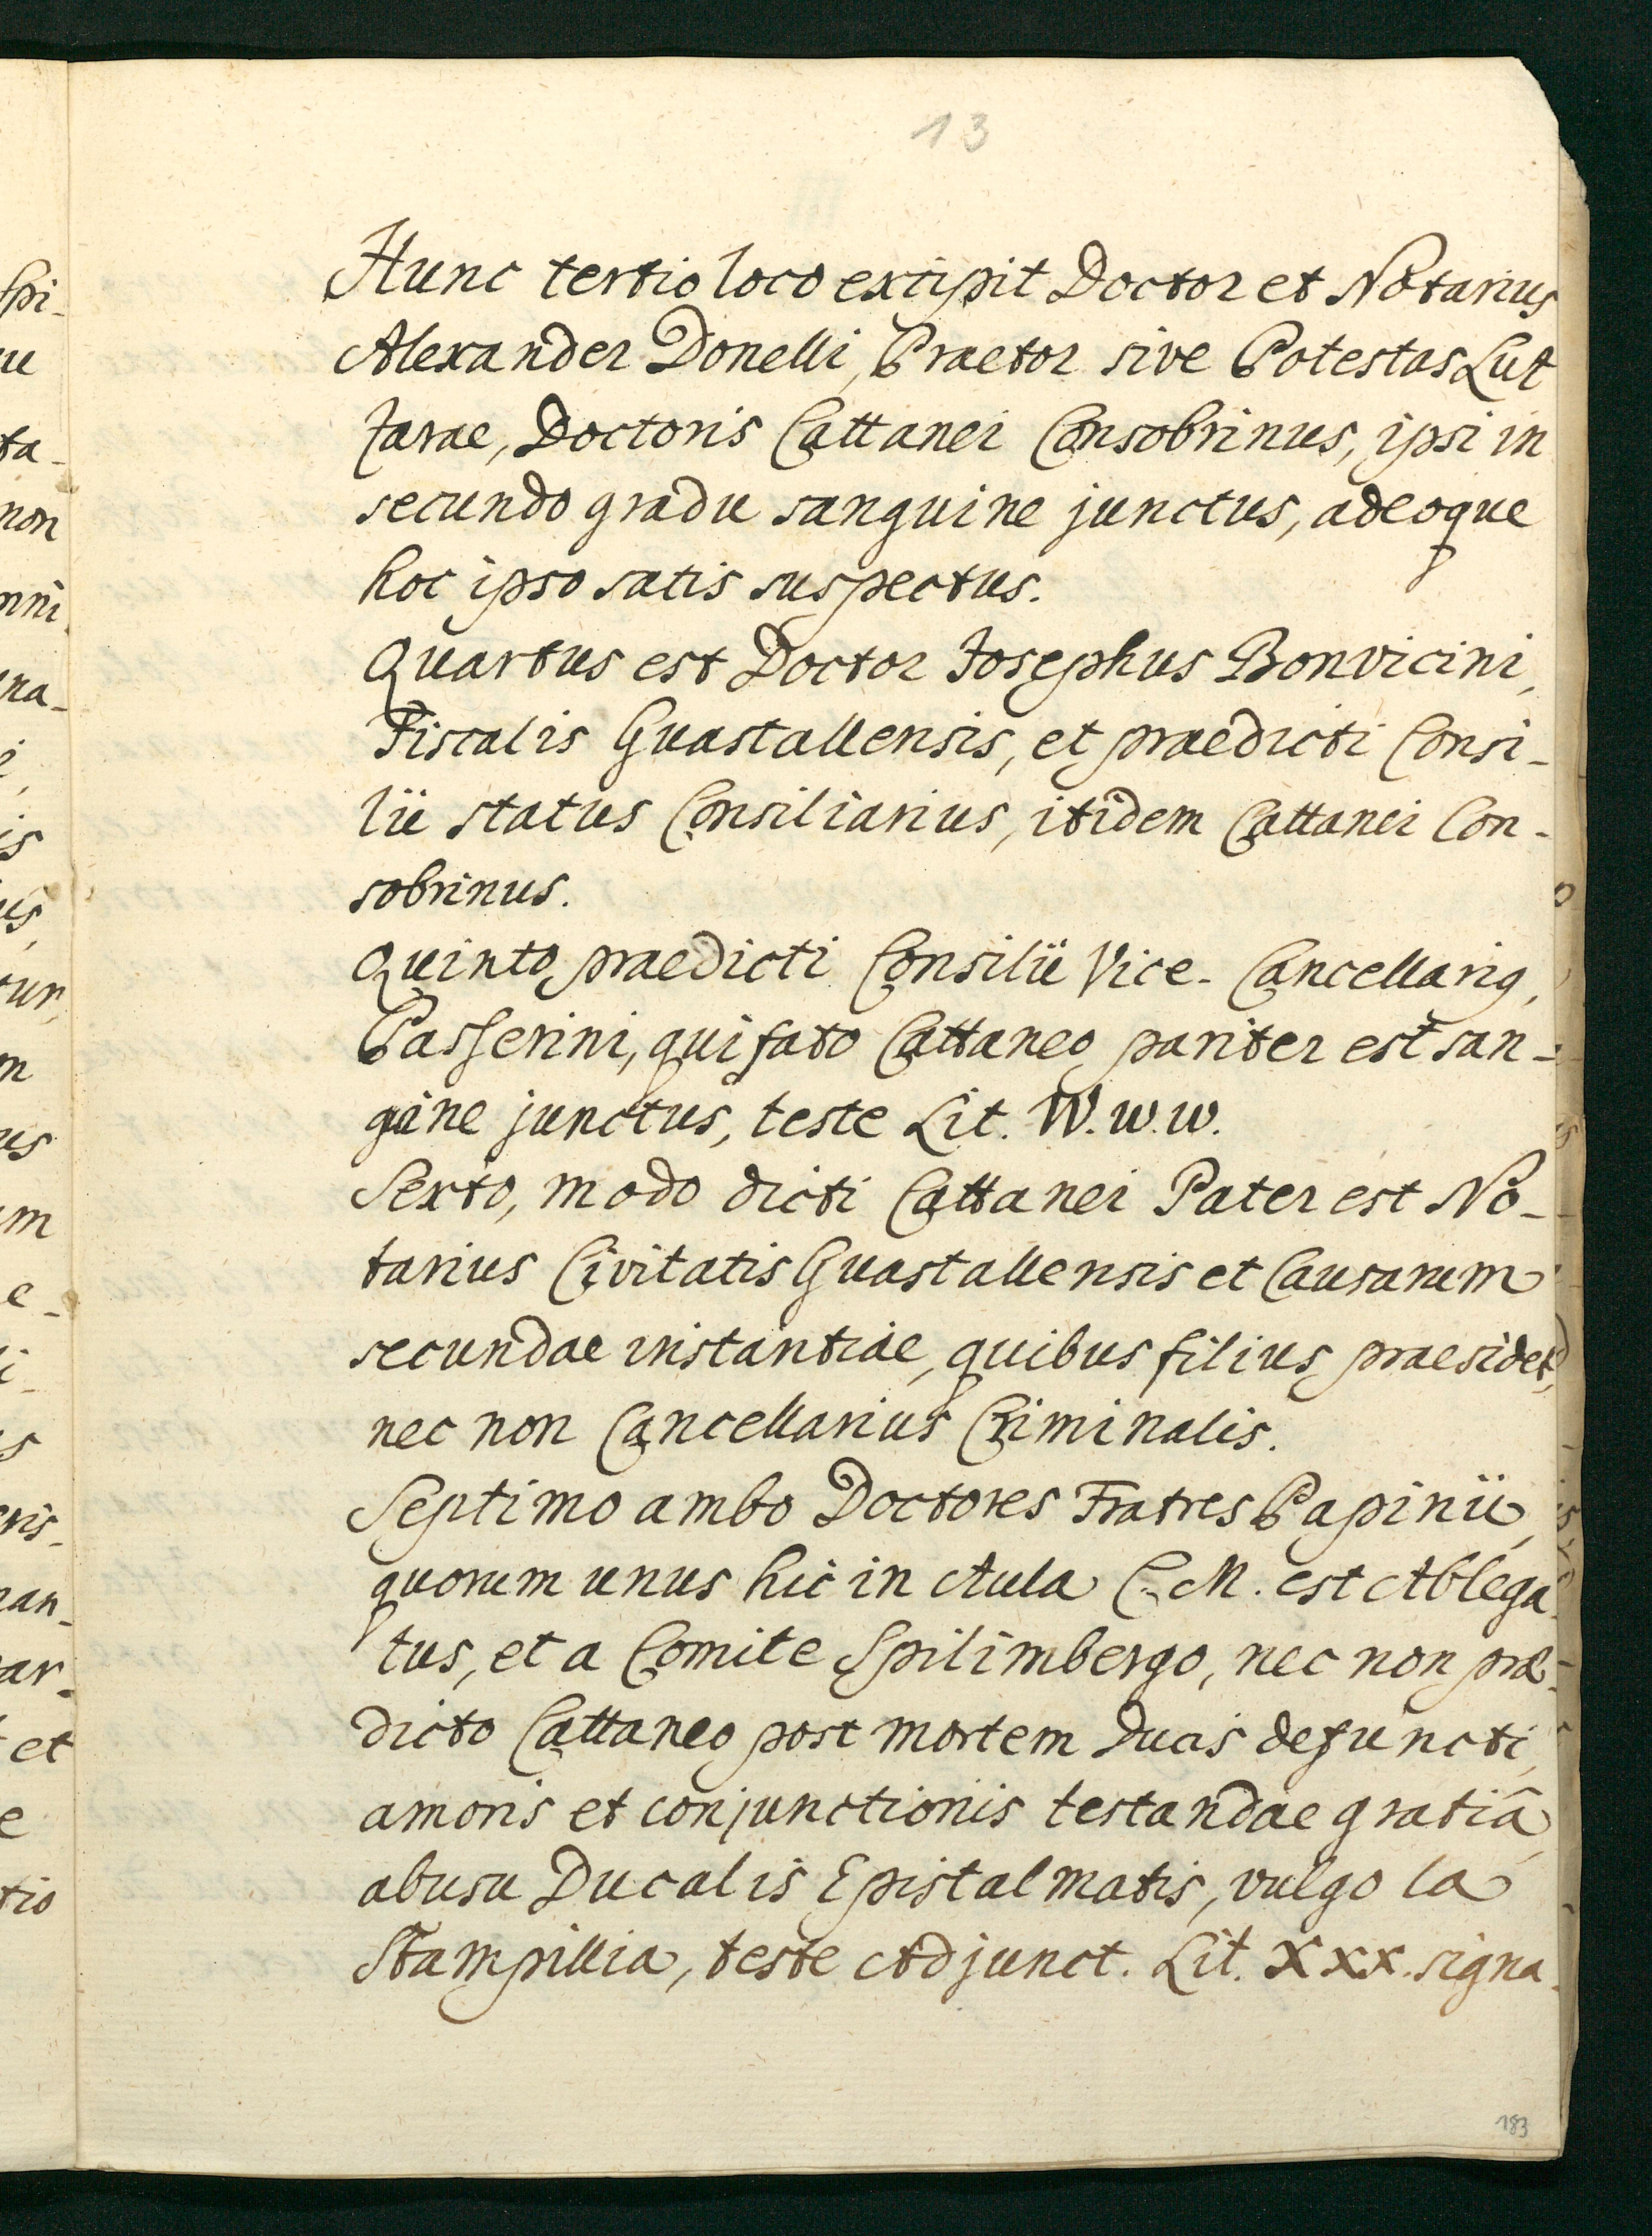 13
Hunc tertio loco excipit Doctor et Notarius
Alexander Donelli, Praetor sive Potestas Lut
zarae, Doctoris Cattanei Consobrinus, ipsi in
secundo gradu sanguine junctus, adeoque
hoc ipso satis suspectus.
Quartus est Doctor Josephus Bonvicini,
Fiscalis Guastallensis, et praedicti Consi-
lii status Consiliarius, itidem Cattanei Con-
sobrinus.
Quinto praedicti Consilii Vice-Cancellarig,
Passerini, qui fato Cattaneo pariter est san-
guine junctus, teste Lit. W.w.w.
Sexto, modo dicti Cattanei Pater est No-
tarius Civitatis Guastallensis et Causarum
secundae instantiae, quibus filius praesidet,
nec non Cancellarius Criminalis.
Septimo ambo Doctores Fratres Papinii,
quorum unus hic in Aula C. M. est Ablega-
tus, et a Comite Spilimbergo, nec non prae-
dicto Cattaneo post mortem Ducis defuncti,
amoris et conjunctionis testandae gratiâ,
abusu Ducalis Epistalmatis, vulgo la
Stampillia, teste Adjunct. Lit. Xxx. signa-
183